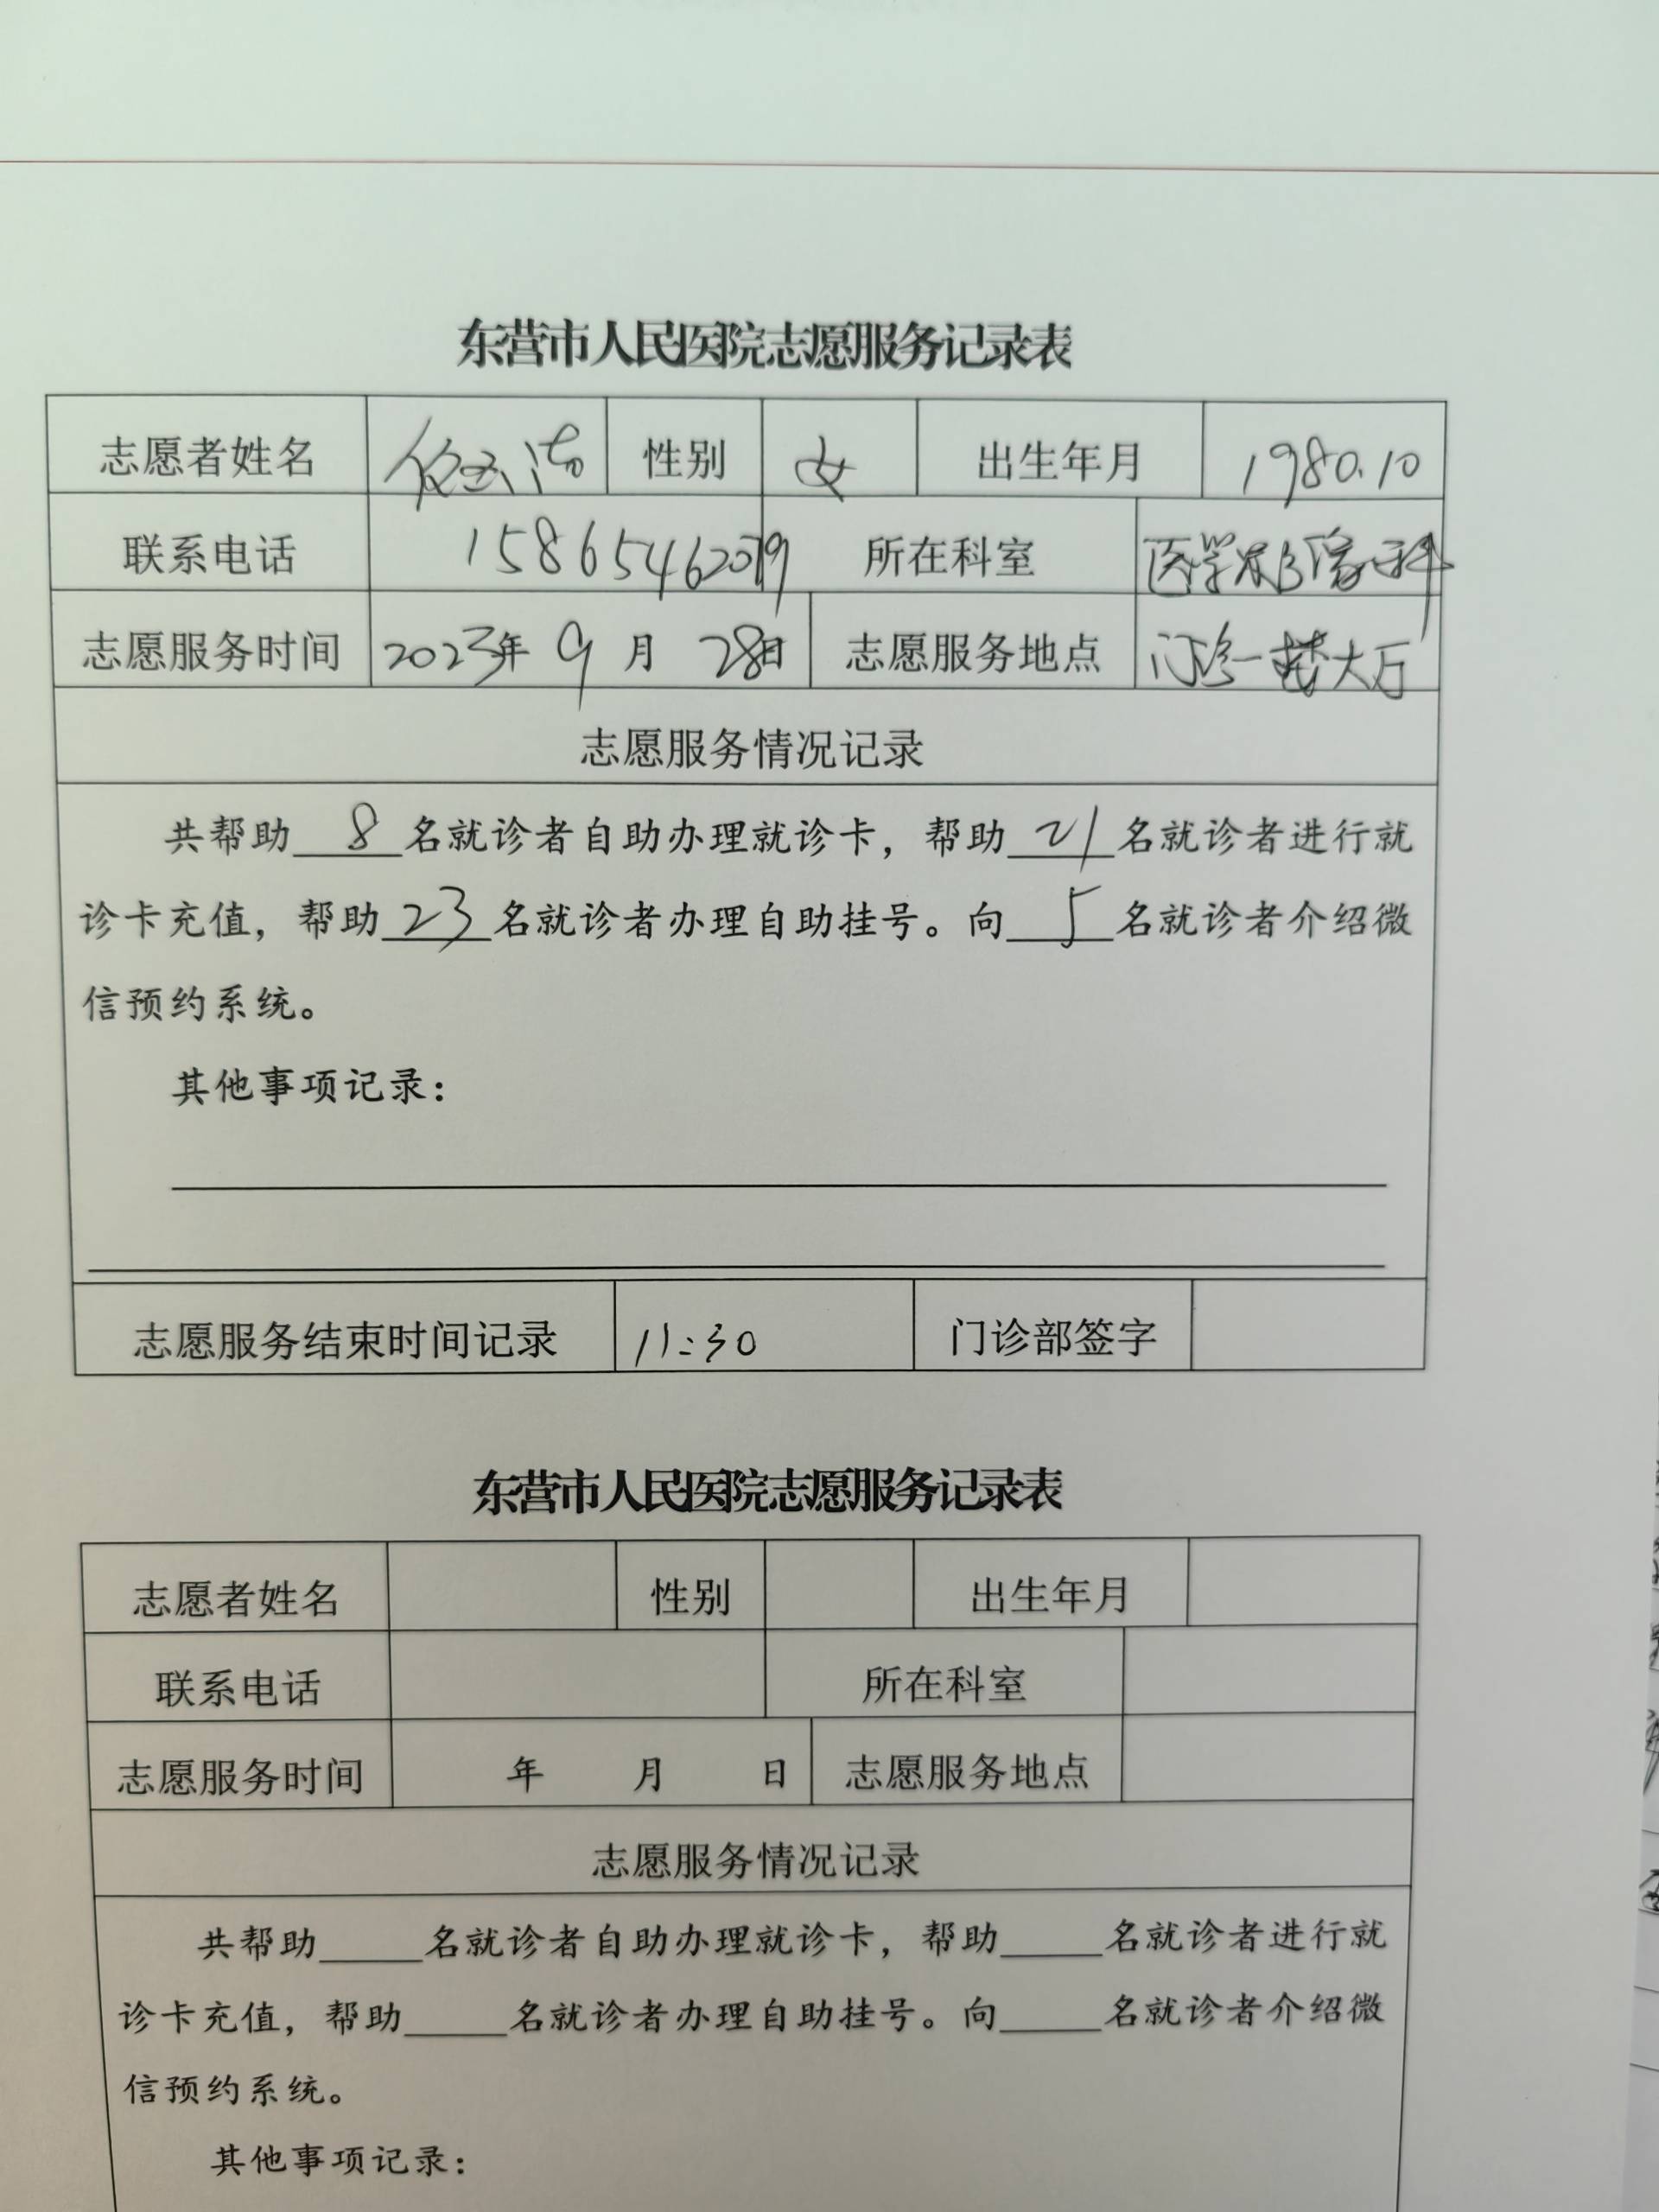 东营市人民医院志愿服务记录表
志愿者姓名 性别 女 出生年月 1980.10
联系电话 15865462079 所在科室 医学影像科
志愿服务时间 2023年 9 月 28日 志愿服务地点 门诊一楼大厅
志愿服务情况记录
共帮助 8 名就诊者自助办理就诊卡，帮助 21 名就诊者进行就
诊卡充值，帮助 23 名就诊者办理自助挂号。向 5 名就诊者介绍微
信预约系统。
其他事项记录：
志愿服务结束时间记录 11:30 门诊部签字
东营市人民医院志愿服务记录表
志愿者姓名 性别 出生年月
联系电话 所在科室
志愿服务时间 年 月 日 志愿服务地点
志愿服务情况记录
共帮助_____名就诊者自助办理就诊卡，帮助_____名就诊者进行就
诊卡充值，帮助_____名就诊者办理自助挂号。向_____名就诊者介绍微
信预约系统。
其他事项记录：